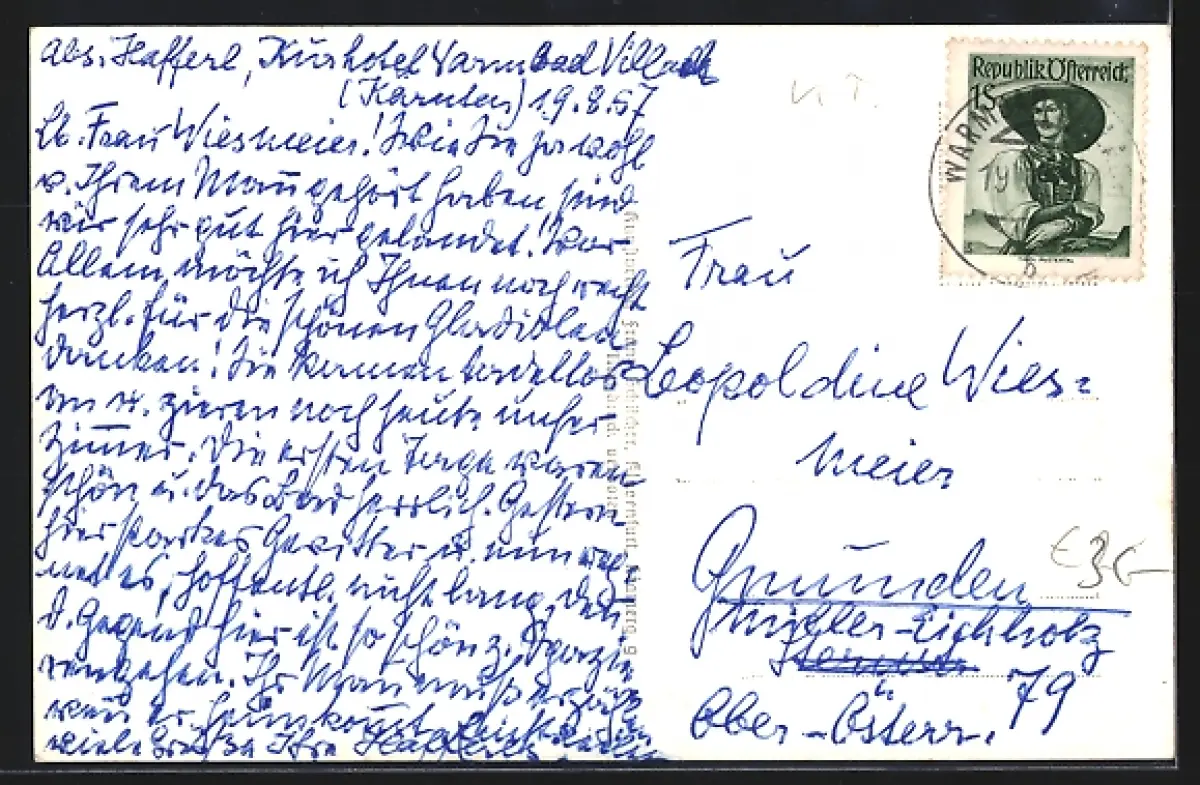 Abs. Hafferl, Kurhotel Warmbad Villach
(Kärnten) 19.8.57
Lb. Frau Wiesmeier! Wie Sie ja wohl
v. Ihrem Mann gehört haben sind
wir sehr gut hier gelandet. Vor
Allem möchte ich Ihnen noch recht
herzl. für die schönen Gladiolen
danken! Sie kamen tadellos
an u. zieren noch heute unser
Zimmer. Die ersten Tage waren
schön u. das Bad herrlich. Gestern
hier starkes Gewitter u. nun reg-
net es, hoffentl. nicht lang, da
d. Gegend hier ist so schön z. Spazie
rengehen. Ihr Mann muß erzählen
wenn er heimkommt
viele Grüße Ihre Hafferl
Republik Österreich
1S
WARM
19
Frau
Leopoldine Wies=
meier
Gmunden
Müller-Eichholz
79
Ober-Österr.
€3G